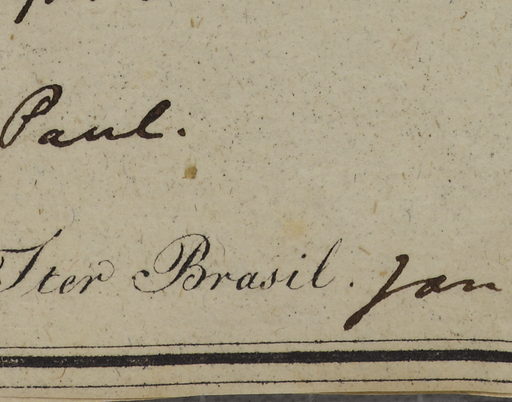 Paul.
Iter Brasil. Jan